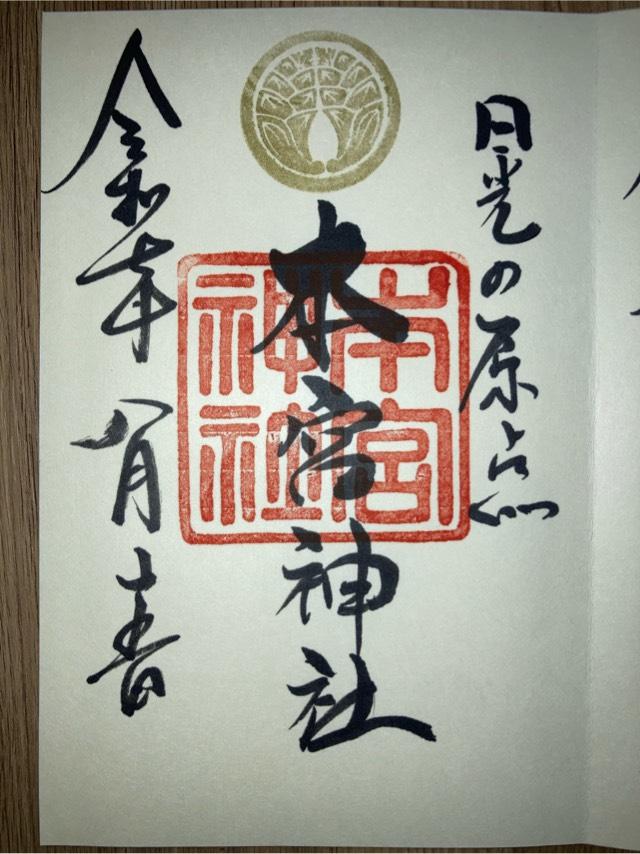 日光の原点
本宮神社
本宮
神社
令和 年八月 日